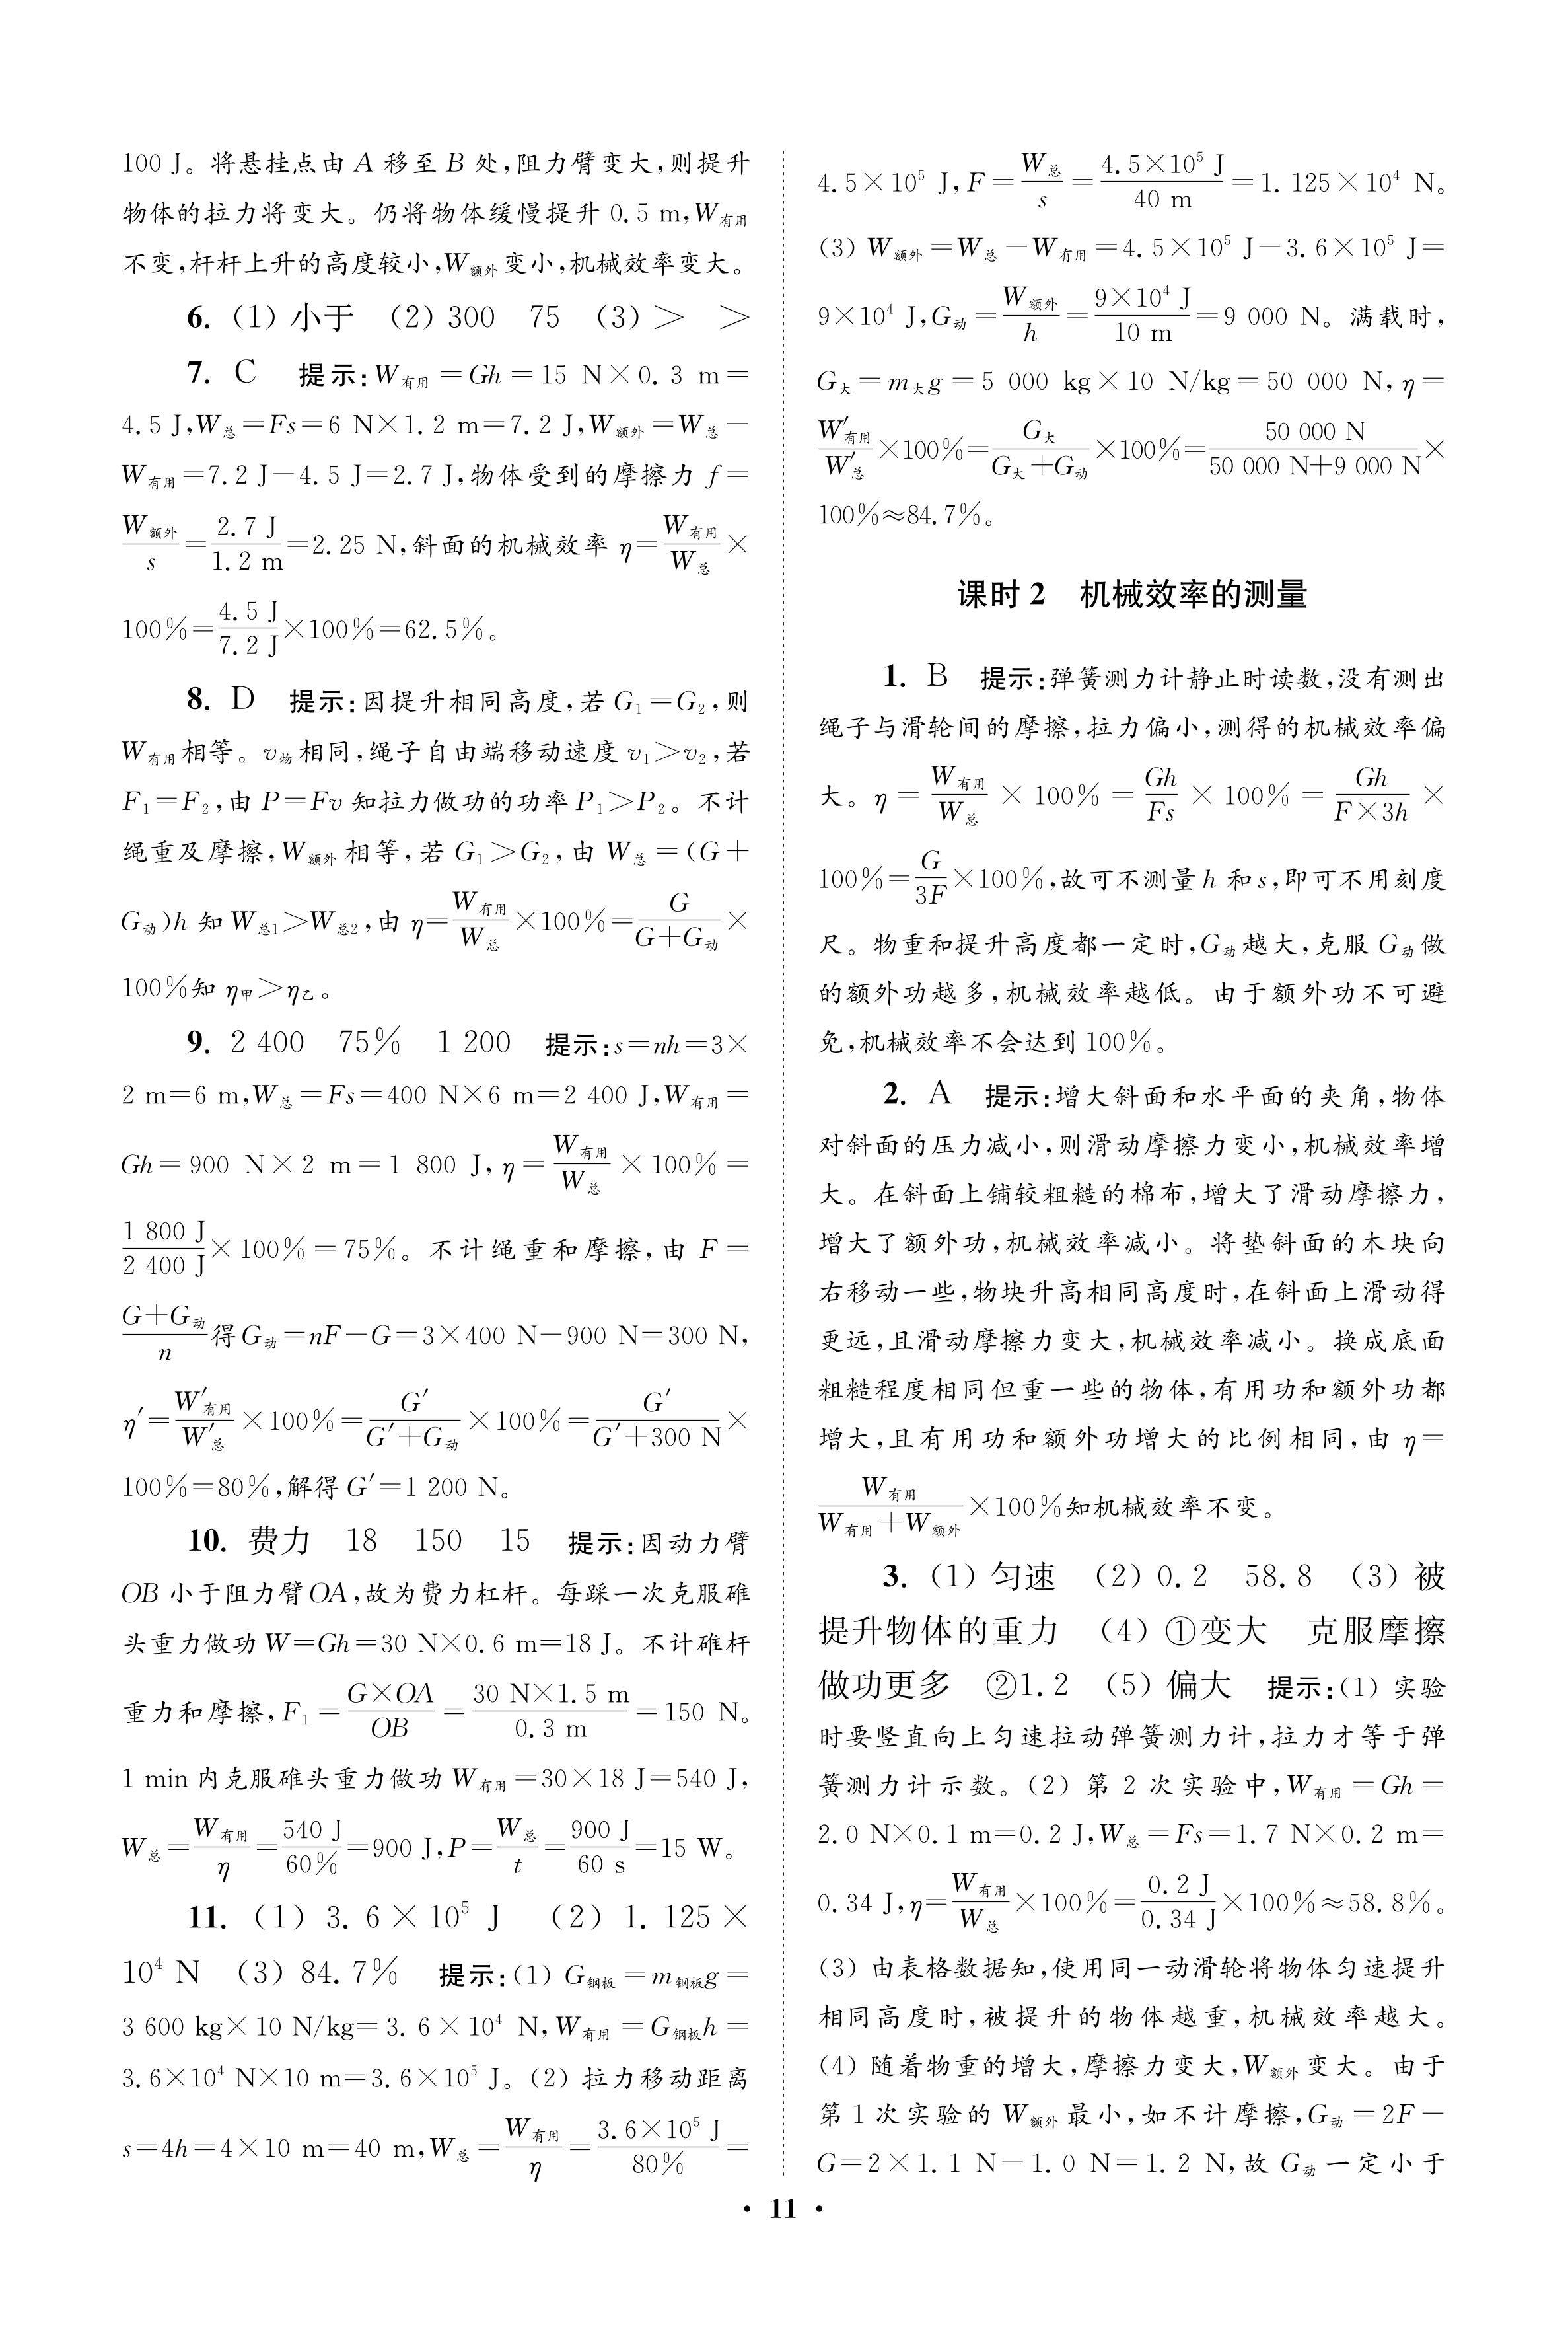 100 J。将悬挂点由 A 移至 B 处,阻力臂变大,则提升
物体的拉力将变大。仍将物体缓慢提升 0.5 m,W有用
不变,杆杆上升的高度较小,W额外变小,机械效率变大。
6. (1) 小于 (2) 300 75 (3) > >
7. C 提示:W有用=Gh=15 N×0.3 m=
4.5 J,W总=Fs=6 N×1.2 m=7.2 J,W额外=W总-
W有用=7.2 J-4.5 J=2.7 J,物体受到的摩擦力 f=
W额外/s=2.7 J/1.2 m=2.25 N,斜面的机械效率 η=W有用/W总×
100%=4.5 J/7.2 J×100%=62.5%。
8. D 提示:因提升相同高度,若 G₁=G₂,则
W有用相等。v物相同,绳子自由端移动速度 v₁>v₂,若
F₁=F₂,由 P=Fv 知拉力做功的功率 P₁>P₂。不计
绳重及摩擦,W额外相等,若 G₁>G₂,由 W总=(G+
G动)h 知 W总1>W总2,由 η=W有用/W总×100%=G/(G+G动)×
100%知 η甲>η乙。
9. 2 400 75% 1 200 提示:s=nh=3×
2 m=6 m,W总=Fs=400 N×6 m=2 400 J,W有用=
Gh=900 N×2 m=1 800 J,η=W有用/W总×100%=
1 800 J/2 400 J×100%=75%。不计绳重和摩擦,由 F=
(G+G动)/n得G动=nF-G=3×400 N-900 N=300 N,
η′=W′有用/W′总×100%=G′/(G′+G动)×100%=G′/(G′+300 N)×
100%=80%,解得 G′=1 200 N。
10. 费力 18 150 15 提示:因动力臂
OB 小于阻力臂 OA,故为费力杠杆。每踩一次克服碓
头重力做功 W=Gh=30 N×0.6 m=18 J。不计碓杆
重力和摩擦,F₁=G×OA/OB=30 N×1.5 m/0.3 m=150 N。
1 min 内克服碓头重力做功 W有用=30×18 J=540 J,
W总=W有用/η=540 J/60%=900 J,P=W总/t=900 J/60 s=15 W。
11. (1) 3.6×10⁵ J (2) 1.125×
10⁴ N (3) 84.7% 提示:(1) G钢板=m钢板g=
3 600 kg×10 N/kg=3.6×10⁴ N,W有用=G钢板h=
3.6×10⁴ N×10 m=3.6×10⁵ J。(2) 拉力移动距离
s=4h=4×10 m=40 m,W总=W有用/η=3.6×10⁵ J/80%=
4.5×10⁵ J,F=W总/s=4.5×10⁵ J/40 m=1.125×10⁴ N。
(3) W额外=W总-W有用=4.5×10⁵ J-3.6×10⁵ J=
9×10⁴ J,G动=W额外/h=9×10⁴ J/10 m=9 000 N。满载时,
G大=m大g=5 000 kg×10 N/kg=50 000 N,η=
W′有用/W′总×100%=G大/(G大+G动)×100%=50 000 N/(50 000 N+9 000 N)×
100%≈84.7%。
课时 2 机械效率的测量
1. B 提示:弹簧测力计静止时读数,没有测出
绳子与滑轮间的摩擦,拉力偏小,测得的机械效率偏
大。η=W有用/W总×100%=Gh/Fs×100%=Gh/(F×3h)×
100%=G/3F×100%,故可不测量 h 和 s,即可不用刻度
尺。物重和提升高度都一定时,G动越大,克服 G动做
的额外功越多,机械效率越低。由于额外功不可避
免,机械效率不会达到 100%。
2. A 提示:增大斜面和水平面的夹角,物体
对斜面的压力减小,则滑动摩擦力变小,机械效率增
大。在斜面上铺较粗糙的棉布,增大了滑动摩擦力,
增大了额外功,机械效率减小。将垫斜面的木块向
右移动一些,物块升高相同高度时,在斜面上滑动得
更远,且滑动摩擦力变大,机械效率减小。换成底面
粗糙程度相同但重一些的物体,有用功和额外功都
增大,且有用功和额外功增大的比例相同,由 η=
W有用/(W有用+W额外)×100%知机械效率不变。
3. (1) 匀速 (2) 0.2 58.8 (3) 被
提升物体的重力 (4) ①变大 克服摩擦
做功更多 ②1.2 (5) 偏大 提示:(1) 实验
时要竖直向上匀速拉动弹簧测力计,拉力才等于弹
簧测力计示数。(2) 第 2 次实验中,W有用=Gh=
2.0 N×0.1 m=0.2 J,W总=Fs=1.7 N×0.2 m=
0.34 J,η=W有用/W总×100%=0.2 J/0.34 J×100%≈58.8%。
(3) 由表格数据知,使用同一动滑轮将物体匀速提升
相同高度时,被提升的物体越重,机械效率越大。
(4) 随着物重的增大,摩擦力变大,W额外变大。由于
第 1 次实验的 W额外最小,如不计摩擦,G动=2F-
G=2×1.1 N-1.0 N=1.2 N,故 G动一定小于
• 11 •